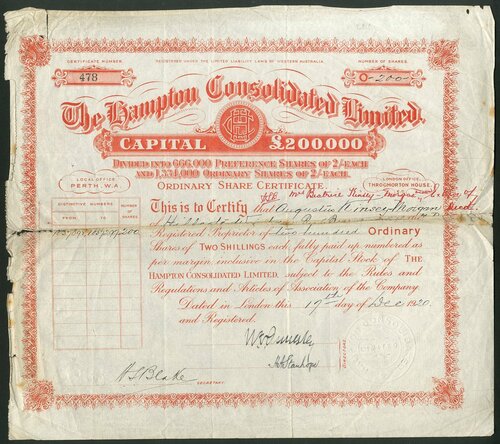 CERTIFICATE NUMBER.
REGISTERED UNDER THE LIMITED LIABILITY LAWS OF WESTERN AUSTRALIA.
NUMBER OF SHARES.
478
-200-
The Hampton Consolidated Limited.
CAPITAL £200,000
DIVIDED INTO 666,000 PREFERENCE SHARES OF 2/- EACH
AND 1,334,000 ORDINARY SHARES OF 2/- EACH.
ORDINARY SHARE CERTIFICATE.
LOCAL OFFICE
PERTH, W.A
LONDON OFFICE.
THROGMORTON HOUSE,
Mrs Beatrice Morgan
DISTINCTIVE NUMBERS
FROM
TO
NUMBER OF SHARES
200
This is to Certify that Augustin Morgan
of
Registered Proprietor of two hundred Ordinary
Shares of TWO SHILLINGS each, fully paid up numbered as
per margin inclusive in the Capital Stock of THE
HAMPTON CONSOLIDATED LIMITED, subject to the Rules and
Regulations and Articles of Association of the Company.
Dated in London this 17th day of Dec 1920.
and Registered.
A S Blake
SECRETARY.
Stanhope
DIRECTORS.